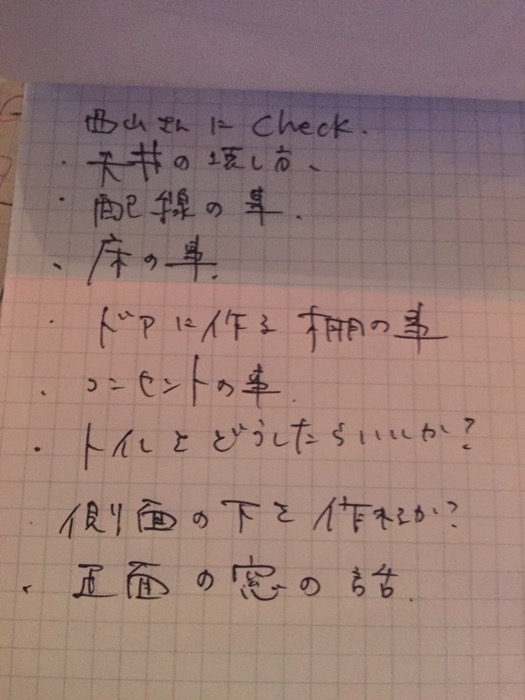 西山さんに Check.
・天井の壊し方、
・配線の事.
・床の事.
・ドアに作る 棚の事
・コンセントの事.
・トイレとどうしたらいいか?
・側面の下を作れるか?
・正面の窓の話.